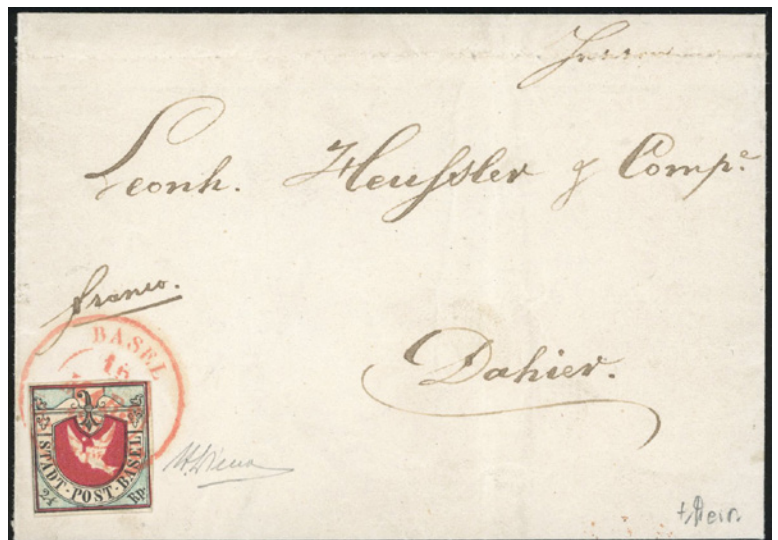 Leonh. Heussler & Comp.e
franco.
BASEL
16
Dahier.
STADT-POST-BASEL
2½ Rp.